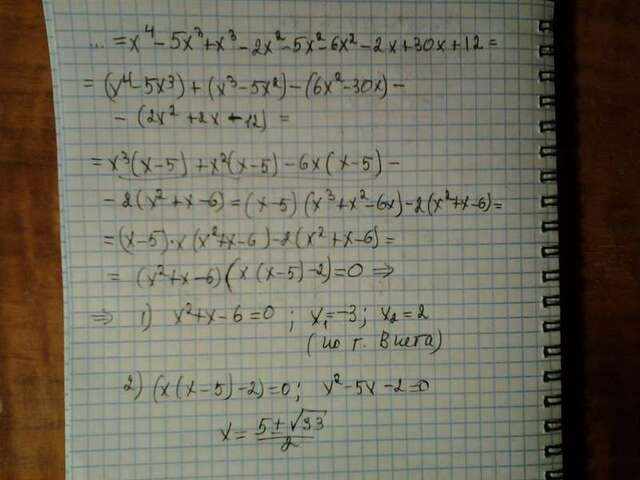 ... = x⁴ - 5x³ + x³ - 2x² - 5x² - 6x² - 2x + 30x + 12 =
= (x⁴ - 5x³) + (x³ - 5x²) - (6x² - 30x) -
- (2x² + 2x - 12) =
= x³(x-5) + x²(x-5) - 6x(x-5) -
- 2(x² + x - 6) = (x-5)(x³ + x² - 6x) - 2(x² + x - 6) =
= (x-5)·x(x² + x - 6) - 2(x² + x - 6) =
= (x² + x - 6)(x(x-5) - 2) = 0 ⇒
⇒ 1) x² + x - 6 = 0 ; x₁ = -3 ; x₂ = 2
(по т. Виета)
2) (x(x-5) - 2) = 0 ; x² - 5x - 2 = 0
x = (5 ± √33)/2